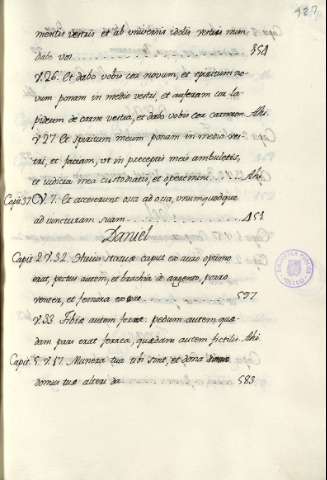 487
mentis vestris et ab universis idolis vestris mun
dabo vos 454
V. 26. Et dabo vobis cor novum, et spiritum no
vum ponam in medio vestri, et auferam cor la
pideum de carne vestra, et dabo vobis cor carneum Ahi.
V. 27 Et spiritum meum ponam in medio ves
tri, et faciam, ut in preceptis meis ambuletis,
et iudicia mea custodiatis, et operemini. Ahi
Capit. 37. V. 7. Et accesserunt osa ad osa, unumquodque
ad iuncturam suam 451
Daniel
Capit. 2. V. 32. Huius statuæ caput ex auro optimo
erat, pectus autem, et brachia de argento, porro
venter, et femora ex ære 597
V. 33. Tibiæ autem ferreæ: pedum autem, quæ
dam pars erat ferrea, quædam autem fictilis. Ahi
Capit. 5. V. 17. Munera tua tibi sint, et dona
domus tuæ alteri da 583